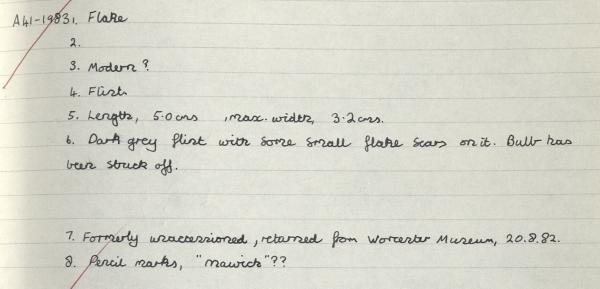 A41-1983 1. Flake
2.
3. Modern?
4. Flint
5. Length, 5.0cms , max. width, 3.2cms.
6. Dark grey flint with some small flake scars on it. Bulb has
been struck off.
7. Formerly unaccessioned, returned from Worcester Museum, 20.8.82.
8. Pencil marks, "mawick"??